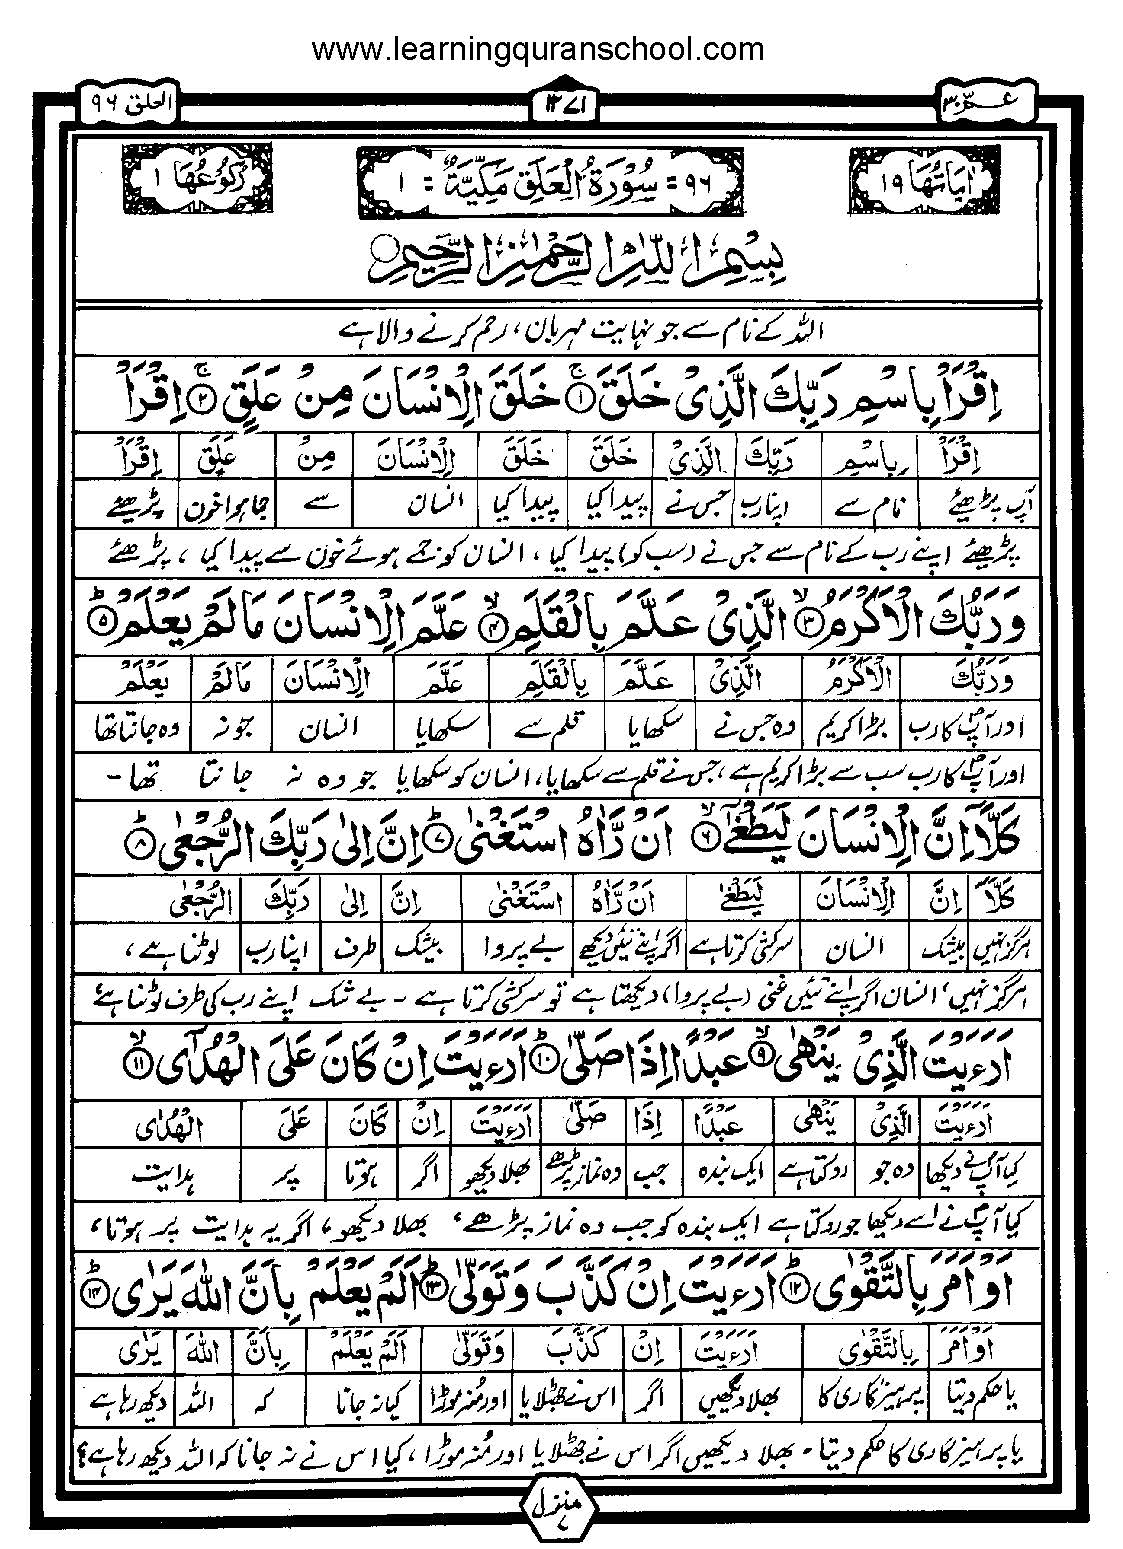 www.learningquranschool.com
عمّ ۳۰
۱۳۷۱
العلق ۹۶
اٰیَاتُهَا ۱۹
۹۶= سُوْرَةُ الْعَلَقِ مَكِّیَّةٌ =۱
رُكُوْعُهَا ۱
بِسْمِ اللّٰهِ الرَّحْمٰنِ الرَّحِیْمِ ○
اللہ کے نام سے جو نہایت مہربان، رحم کرنے والا ہے
اِقْرَاْ بِاسْمِ رَبِّكَ الَّذِیْ خَلَقَ ۚ۝۱ خَلَقَ الْاِنْسَانَ مِنْ عَلَقٍ ۚ۝۲ اِقْرَاْ
اِقْرَاْ بِاسْمِ رَبِّكَ الَّذِیْ خَلَقَ خَلَقَ الْاِنْسَانَ مِنْ عَلَقٍ اِقْرَاْ
آپ پڑھئے نام سے اپنا رب جس نے پیدا کیا پیدا کیا انسان سے جما ہوا خون پڑھئے
پڑھئے اپنے رب کے نام سے جس نے (سب کو) پیدا کیا، انسان کو جمے ہوئے خون سے پیدا کیا، پڑھئے
وَرَبُّكَ الْاَكْرَمُ ۙ۝۳ الَّذِیْ عَلَّمَ بِالْقَلَمِ ۙ۝۴ عَلَّمَ الْاِنْسَانَ مَا لَمْ یَعْلَمْ ؕ۝۵
وَرَبُّكَ الْاَكْرَمُ الَّذِیْ عَلَّمَ بِالْقَلَمِ عَلَّمَ الْاِنْسَانَ مَا لَمْ یَعْلَمْ
اور آپ کا رب بڑا کریم وہ جس نے سکھایا قلم سے سکھایا انسان جو نہ وہ جانتا تھا
اور آپ کا رب سب سے بڑا کریم ہے، جس نے قلم سے سکھایا، انسان کو سکھایا جو وہ نہ جانتا تھا -
كَلَّاۤ اِنَّ الْاِنْسَانَ لَیَطْغٰۤی ۙ۝۶ اَنْ رَّاٰهُ اسْتَغْنٰی ؕ۝۷ اِنَّ اِلٰی رَبِّكَ الرُّجْعٰی ؕ۝۸
كَلَّاۤ اِنَّ الْاِنْسَانَ لَیَطْغٰۤی اَنْ رَّاٰهُ اسْتَغْنٰی اِنَّ اِلٰی رَبِّكَ الرُّجْعٰی
ہرگز نہیں بیشک انسان سرکشی کرتا ہے اگر اپنے تئیں دیکھے بے پروا بیشک طرف اپنا رب لوٹنا ہے،
ہرگز نہیں، انسان اگر اپنے تئیں غنی (بے پروا) دیکھتا ہے تو سرکشی کرتا ہے - بے شک اپنے رب کی طرف لوٹنا ہے
اَرَءَیْتَ الَّذِیْ یَنْهٰی ۙ۝۹ عَبْدًا اِذَا صَلّٰی ؕ۝۱۰ اَرَءَیْتَ اِنْ كَانَ عَلَی الْهُدٰۤی ۙ۝۱۱
اَرَءَیْتَ الَّذِیْ یَنْهٰی عَبْدًا اِذَا صَلّٰی اَرَءَیْتَ اِنْ كَانَ عَلَی الْهُدٰۤی
کیا آپ نے دیکھا وہ جو روکتا ہے ایک بندہ جب وہ نماز پڑھے بھلا دیکھو اگر ہوتا پر ہدایت
کیا آپ نے اسے دیکھا جو روکتا ہے ایک بندہ کو جب وہ نماز پڑھے، بھلا دیکھو، اگر یہ ہدایت پر ہوتا،
اَوْ اَمَرَ بِالتَّقْوٰی ؕ۝۱۲ اَرَءَیْتَ اِنْ كَذَّبَ وَتَوَلّٰی ؕ۝۱۳ اَلَمْ یَعْلَمْ بِاَنَّ اللّٰهَ یَرٰی ؕ۝۱۴
اَوْ اَمَرَ بِالتَّقْوٰی اَرَءَیْتَ اِنْ كَذَّبَ وَتَوَلّٰی اَلَمْ یَعْلَمْ بِاَنَّ اللّٰهَ یَرٰی
یا حکم دیتا پرہیزگاری کا بھلا دیکھیں اگر اس نے جھٹلایا اور منہ موڑا کیا نہ جانا کہ اللہ دیکھ رہا ہے
یا پرہیزگاری کا حکم دیتا - بھلا دیکھیں اگر اس نے جھٹلایا اور مُنہ موڑا، کیا اس نے نہ جانا کہ اللہ دیکھ رہا ہے؟
منزل ۷